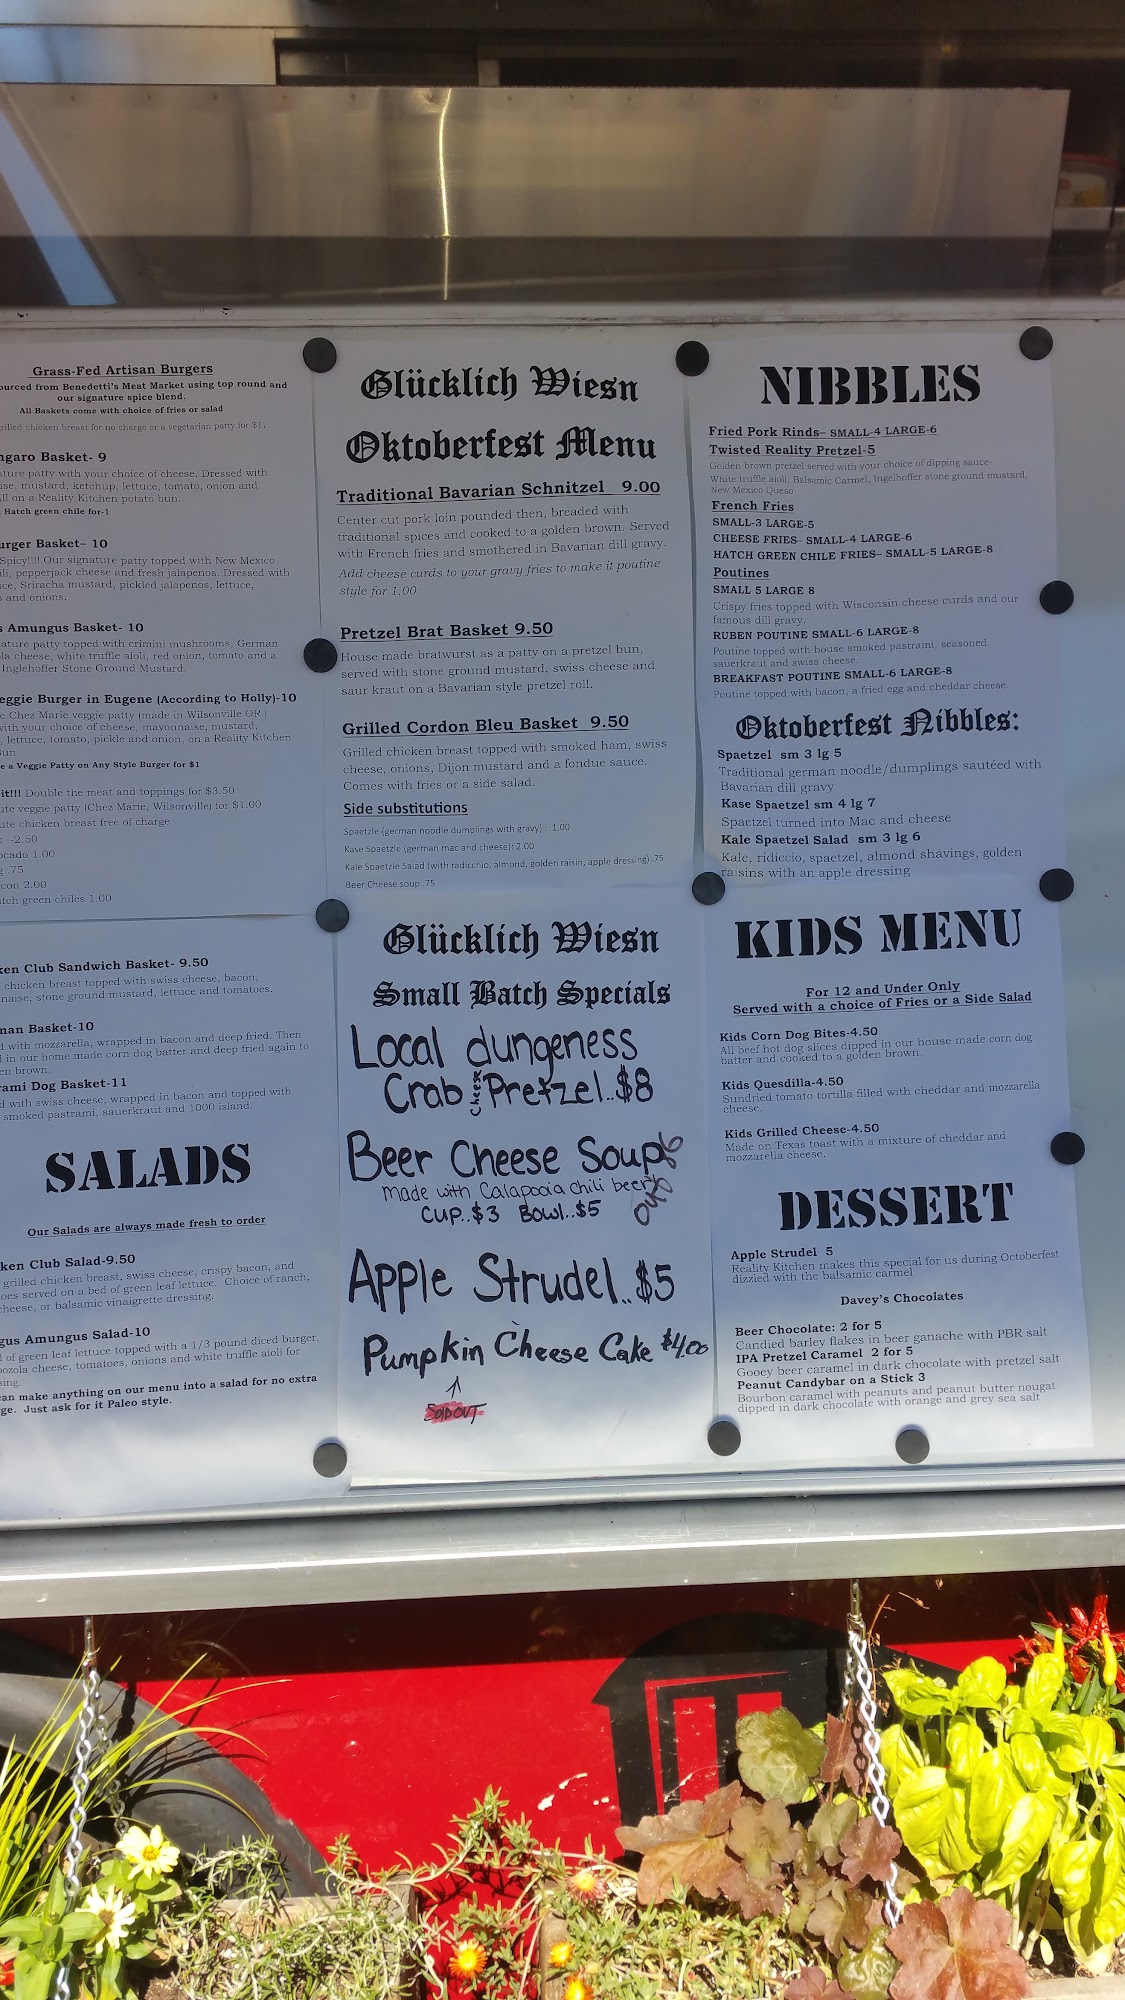 Grass-Fed Artisan Burgers
ourced from Benedetti's Meat Market using top round and
our signature spice blend.
All Baskets come with choice of fries or salad
rilled chicken breast for no charge or a vegetarian patty for $1.
ngaro Basket- 9
ture patty with your choice of cheese. Dressed with
ise, mustard, ketchup, lettuce, tomato, onion and
ll on a Reality Kitchen potato bun.
Hatch green chile for-1
urger Basket– 10
Spicy!!!! Our signature patty topped with New Mexico
ili, pepperjack cheese and fresh jalapenos. Dressed with
ce, Sriracha mustard, pickled jalapenos, lettuce,
s and onions.
s Amungus Basket- 10
ature patty topped with crimini mushrooms, German
la cheese, white truffle aioli, red onion, tomato and a
Inglehoffer Stone Ground Mustard.
eggie Burger in Eugene (According to Holly)-10
c Chez Marie veggie patty (made in Wilsonville OR.)
with your choice of cheese, mayonnaise, mustard,
, lettuce, tomato, pickle and onion, on a Reality Kitchen
Bun
e a Veggie Patty on Any Style Burger for $1
it!!! Double the meat and toppings for $3.50
ute veggie patty (Chez Marie, Wilsonville) for $1.00
ute chicken breast free of charge
: -2.50
ocado 1.00
g .75
con 2.00
tch green chiles 1.00
ken Club Sandwich Basket- 9.50
chicken breast topped with swiss cheese, bacon,
naise, stone ground mustard, lettuce and tomatoes.
man Basket-10
d with mozzarella, wrapped in bacon and deep fried. Then
d in our home made corn dog batter and deep fried again to
en brown.
rami Dog Basket-11
d with swiss cheese, wrapped in bacon and topped with
smoked pastrami, sauerkraut and 1000 island.
SALADS
Our Salads are always made fresh to order
ken Club Salad-9.50
grilled chicken breast, swiss cheese, crispy bacon, and
oes served on a bed of green leaf lettuce. Choice of ranch,
cheese, or balsamic vinaigrette dressing.
gus Amungus Salad-10
d of green leaf lettuce topped with a 1/3 pound diced burger,
ozola cheese, tomatoes, onions and white truffle aioli for
sing.
can make anything on our menu into a salad for no extra
ge. Just ask for it Paleo style.
Glücklich Wiesn
Oktoberfest Menu
Traditional Bavarian Schnitzel 9.00
Center cut pork loin pounded then, breaded with
traditional spices and cooked to a golden brown. Served
with French fries and smothered in Bavarian dill gravy.
Add cheese curds to your gravy fries to make it poutine
style for 1.00
Pretzel Brat Basket 9.50
House made bratwurst as a patty on a pretzel bun,
served with stone ground mustard, swiss cheese and
saur kraut on a Bavarian style pretzel roll.
Grilled Cordon Bleu Basket 9.50
Grilled chicken breast topped with smoked ham, swiss
cheese, onions, Dijon mustard and a fondue sauce.
Comes with fries or a side salad.
Side substitutions
Spaetzle (german noodle dumplings with gravy) : 1.00
Kase Spaetzle (german mac and cheese): 2.00
Kale Spaetzle Salad (with radicchio, almond, golden raisin, apple dressing) .75
Beer Cheese soup .75
Glücklich Wiesn
Small Batch Specials
Local dungeness
Crab Cheese Pretzel..$8
Beer Cheese Soup 86
made with Calapooia chili beer OUT
Cup..$3 Bowl..$5
Apple Strudel..$5
Pumpkin Cheese Cake $4.00
SOLD OUT
NIBBLES
Fried Pork Rinds– SMALL-4 LARGE-6
Twisted Reality Pretzel-5
Golden brown pretzel served with your choice of dipping sauce-
White truffle aioli, Balsamic Carmel, Ingelhoffer stone ground mustard,
New Mexico Queso
French Fries
SMALL-3 LARGE-5
CHEESE FRIES– SMALL-4 LARGE-6
HATCH GREEN CHILE FRIES– SMALL-5 LARGE-8
Poutines
SMALL 5 LARGE 8
Crispy fries topped with Wisconsin cheese curds and our
famous dill gravy.
RUBEN POUTINE SMALL-6 LARGE-8
Poutine topped with house smoked pastrami, seasoned
sauerkraut and swiss cheese.
BREAKFAST POUTINE SMALL-6 LARGE-8
Poutine topped with bacon, a fried egg and cheddar cheese.
Oktoberfest Nibbles:
Spaetzel sm 3 lg 5
Traditional german noodle/dumplings sautéed with
Bavarian dill gravy
Kase Spaetzel sm 4 lg 7
Spaetzel turned into Mac and cheese
Kale Spaetzel Salad sm 3 lg 6
Kale, ridiccio, spaetzel, almond shavings, golden
raisins with an apple dressing
KIDS MENU
For 12 and Under Only
Served with a choice of Fries or a Side Salad
Kids Corn Dog Bites-4.50
All beef hot dog slices dipped in our house made corn dog
batter and cooked to a golden brown.
Kids Quesdilla-4.50
Sundried tomato tortilla filled with cheddar and mozzarella
cheese.
Kids Grilled Cheese-4.50
Made on Texas toast with a mixture of cheddar and
mozzarella cheese.
DESSERT
Apple Strudel 5
Reality Kitchen makes this special for us during Octoberfest
dizzied with the balsamic carmel
Davey's Chocolates
Beer Chocolate: 2 for 5
Candied barley flakes in beer ganache with PBR salt
IPA Pretzel Caramel 2 for 5
Gooey beer caramel in dark chocolate with pretzel salt
Peanut Candybar on a Stick 3
Bourbon caramel with peanuts and peanut butter nougat
dipped in dark chocolate with orange and grey sea salt